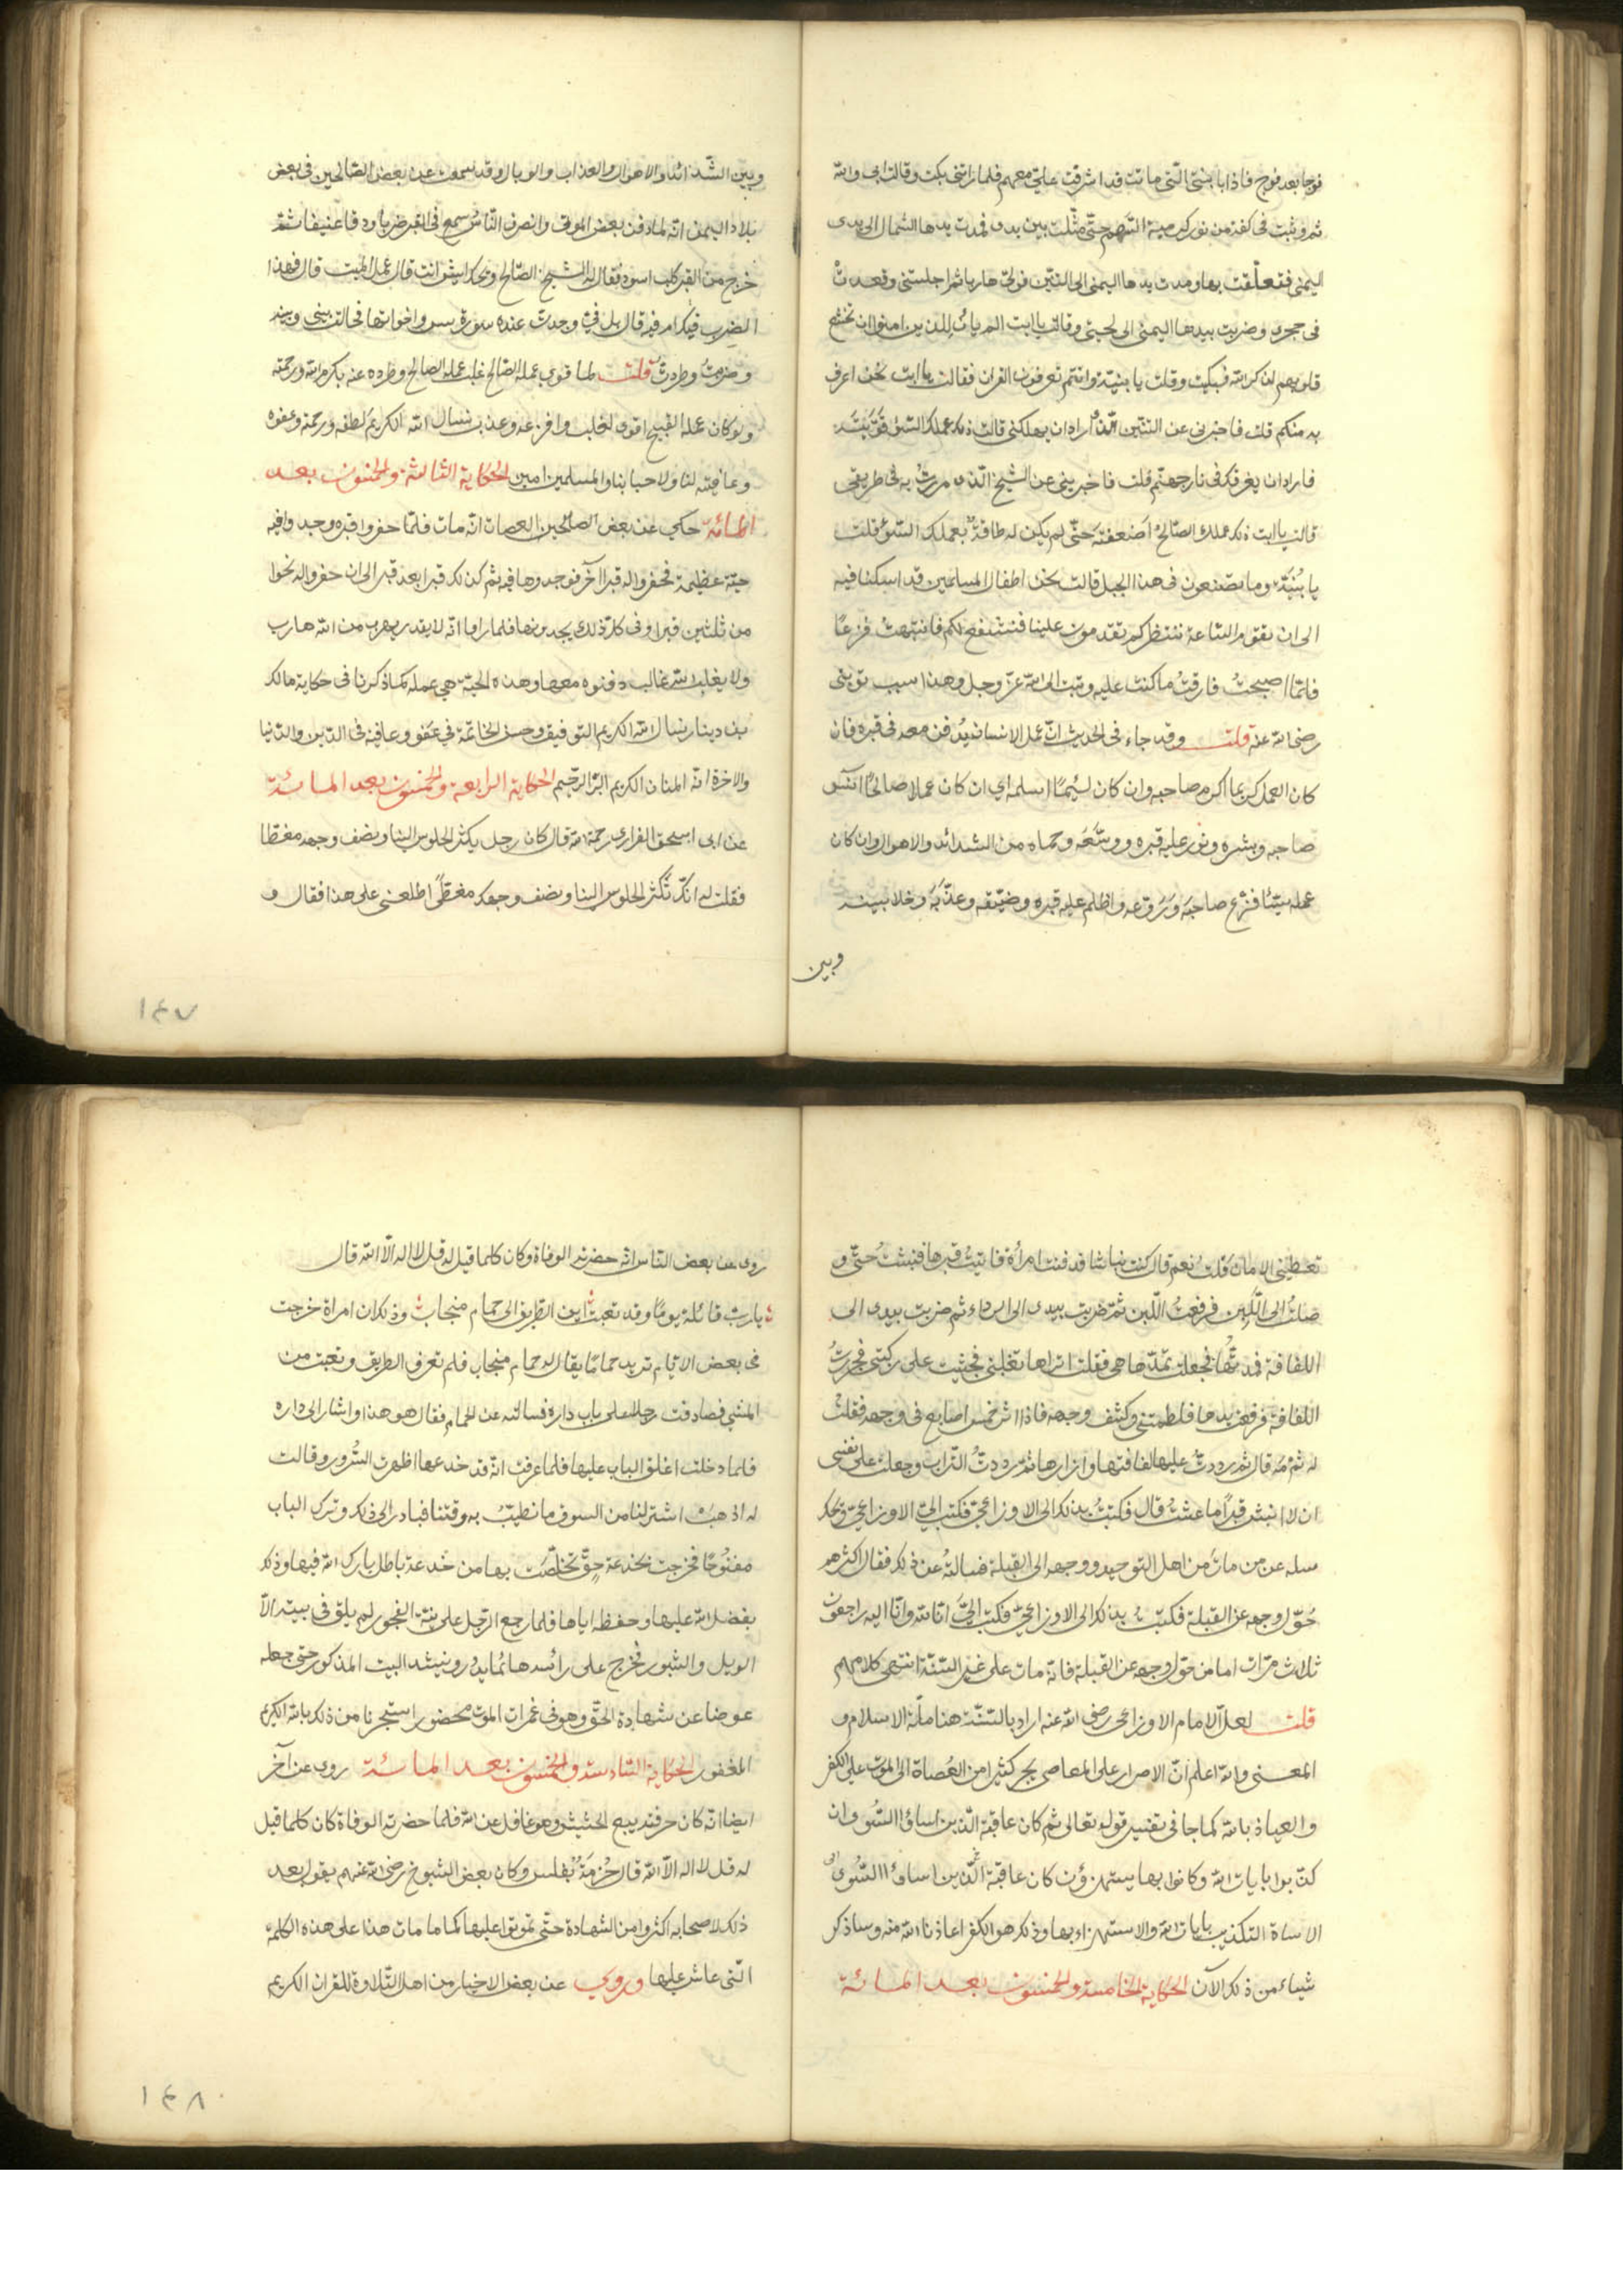 فوجا بعد فوج فاذا بابنتي التي ماتت قد اشرفت علي معهم فلما راتني بكت وقالت ابي والله
ثم وثبت في كفة من نور كرمية السهم حتى مثلت بين يدي فمدت يدها الشمال الى يدي
اليمنى فتعلقت بها ومدت يدها اليمنى الى التنين فولى هاربا ثم اجلستني وقعدت
في حجري وضربت بيدها اليمنى الى لحيتي وقالت يا ابت الم يان للذين امنوا ان تخشع
قلوبهم لذكر الله فبكيت وقلت يا بنية وانتم تعرفون القران فقالت يا ابت نحن اعرف
به منكم قلت فاخبريني عن التنين الذي اراد ان يهلكني قالت ذلك عملك السوء قويته
فاراد ان يغرقك في نار جهنم قلت فاخبريني عن الشيخ الذي مررت به في طريقي
قالت يا ابت ذلك عملك الصالح اضعفته حتى لم يكن له طاقة بعملك السوء قلت
يا بنية وما تصنعون في هذا الجبل قالت نحن اطفال المسلمين قد اسكنا فيه
الى ان تقوم الساعة ننتظركم تقدمون علينا فنشفع لكم فانتبهت فزعا
فلما اصبحت فارقت ما كنت عليه وتبت الى الله عز وجل وهذا سبب توبتي
رضي الله عنه قلت وقد جاء في الحديث ان عمل الانسان يدفن معه في قبره فان
كان العمل كريما اكرم صاحبه وان كان لئيما اسلمه اي ان كان عملا صالحا انس
صاحبه وبشره ونور عليه قبره ووسعه وحماه من الشدائد والاهوال وان كان
عمله سيئا فزع صاحبه وروعه واظلم عليه قبره وضيقه وعذبه وخلا بينه
وبين
وبين الشدائد والاهوال والعذاب والوبال وقد سمعت عن بعض الصالحين في بعض
بلاد اليمن انه لما دفن بعض الموتى وانصرف الناس سمع في القبر ضربا ودقا عنيفا ثم
خرج من القبر كلب اسود فقال له الشيخ الصالح ويحك ايش انت قال عمل الميت قال فهذا
الضرب فيك ام فيه قال بل في وجدت عنده سورة يس واخواتها فحالت بيني وبينه
وضربت وطردت قلت لما قوي عمله الصالح غلب عمله الصالح وطرده عنه بكرم الله ورحمته
ولو كان عمله القبيح اقوى لغلب وافزعه وعذبه نسال الله الكريم لطفه ورحمته وعفوه
وعافيته لنا ولاحبابنا والمسلمين امين الحكاية الثالثة والخمسون بعد
المائة حكي عن بعض الصالحين العصاة انه مات فلما حفروا قبره وجدوا فيه
حية عظيمة فحفروا له قبرا آخر فوجدوها فيه ثم كذلك قبرا بعد قبر الى ان حفروا له نحوا
من ثلثين قبرا وفي كل ذلك يجدونها فلما راوا انه لا يقدر يهرب من الله هارب
ولا يغلب الله غالب دفنوه معها وهذه الحية هي عمله كما ذكرنا في حكاية مالك
بن دينار نسال الله الكريم التوفيق وحسن الخاتمة في عفو وعافية في الدين والدنيا
والاخرة انه المنان الكريم البر الرحيم الحكاية الرابعة والخمسون بعد المائة
عن ابي اسحق الفزاري رحمه الله قال كان رجل يكثر الجلوس الينا ونصف وجهه مغطا
فقلت له انك تكثر الجلوس الينا ونصف وجهك مغطى اطلعني على هذا فقال و
١٤٧
تعطيني الامان قلت نعم قال كنت نباشا فدفنت امرأة فاتيت قبرها فنبشت حتى و
صلت الى اللبن فرفعت اللبن ثم ضربت بيدي الى الرداء ثم ضربت بيدي الى
اللفافة فمددتها فجعلت تمدها هي فقلت اتراها تغلبني فجثيت على ركبتي فجررت
اللفافة فرفعت يدها فلطمتني وكشف وجهه فاذا اثر خمس اصابع في وجهه فقلت
له ثم مه قال ثم رددت عليها لفافتها وازارها ثم رددت التراب وجعلت على نفسي
ان لا انبش قبرا ما عشت قال فكتبت بذلك الى الاوزاعي فكتب الي الاوزاعي ويحك
سله عن من مات من اهل التوحيد ووجهه الى القبلة فسالته عن ذلك فقال اكثرهم
حول وجهه عن القبلة فكتبت بذلك الى الاوزاعي فكتب الي انا لله وانا اليه راجعون
ثلاث مرات اما من حول وجهه عن القبلة فانه مات على غير السنة انتهى كلامهم
قلت لعل الامام الاوزاعي رضي الله عنه اراد بالسنة هنا ملة الاسلام و
المعنى والله اعلم ان الاصرار على المعاصي يجر كثيرا من العصاة الى الموت على الكفر
والعياذ بالله كما جا في تفسير قوله تعالى ثم كان عاقبة الذين اساؤا السوء ان
كذبوا بايات الله وكانوا بها يستهزؤن كان عاقبة الذين اساؤا السوى
الاساة التكذيب بايات الله والاستهزاء بها وذلك هو الكفر اعاذنا الله منه وساذكر
شياء من ذلك الآن الحكاية الخامسة والخمسون بعد المائة
روي عن بعض الناس انه حضرته الوفاة وكان كلما قيل له قل لا اله الا الله قال
يارب قائلة يوما وقد تعبت اين الطريق الى حمام منجاب وذلك ان امراة خرجت
في بعض الايام تريد حماما يقال له حمام منجاب فلم تعرف الطريق وتعبت من
المشي فصادفت رجلا على باب داره فسالته عن الحمام فقال هو هذا واشار الى داره
فلما دخلت اغلق الباب عليها فلما عرفت انه قد خدعها اظهرت السرور وقالت
له اذهب اشتر لنا من السوق ما نطيب به وقتنا فبادر الى ذلك وترك الباب
مفتوحا فخرجت بخدعة حق تخلصت بها من خدعة باطل بارك الله فيها وذلك
بفضل الله عليها وحفظه اياها فلما رجع الرجل على نية الفجور لم يلق في بيته الا
الويل والثبور فخرج على رائسه هائما يدور وينشد البيت المذكور حتى جعله
عوضا عن شهادة الحق وهو في غمرات الموت محضور استجرنا من ذلك بالله الكريم
الغفور الحكاية السادسة والخمسون بعد المائة روي عن آخر
ايضا انه كان حرفته يبيع الحشيش وهو غافل عن الله فلما حضرته الوفاة كان كلما قيل
له قل لا اله الا الله قال حزمة بفلس وكان بعض الشيوخ رضي الله عنهم يقول بعد
ذلك لاصحابه اكثروا من الشهادة حتى تموتوا عليها كما مات هذا على هذه الكلمة
التي عاش عليها وروي عن بعض الاخيار من اهل التلاوة للقران الكريم
١٤٨